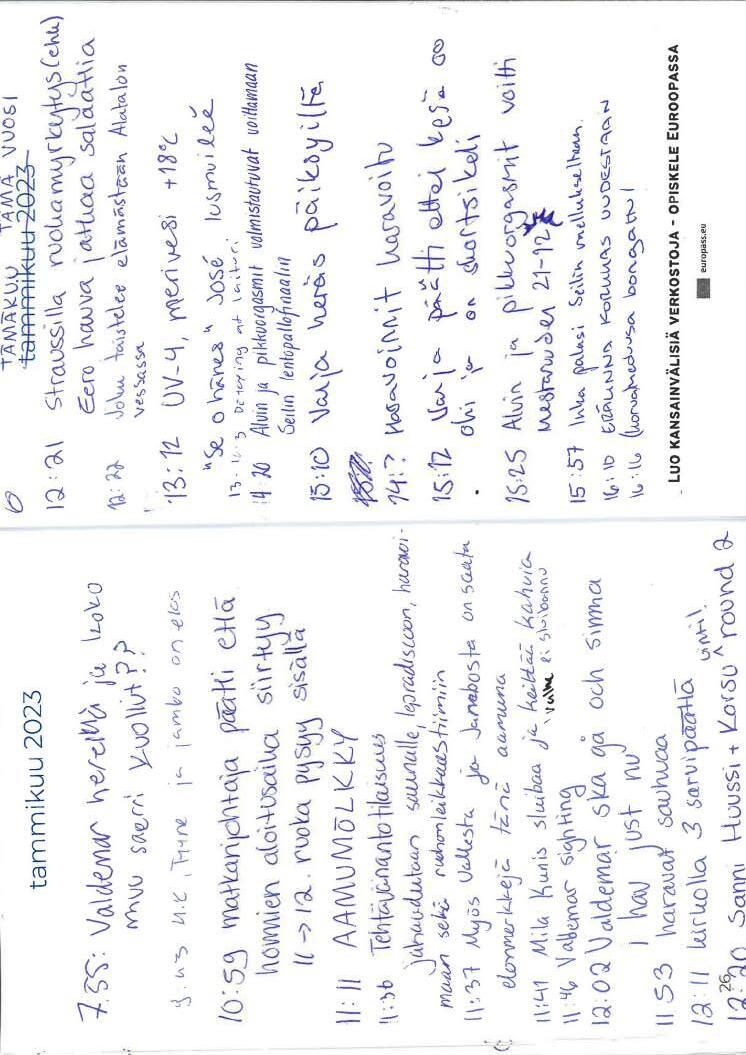 tammikuu 2023
7.55: Valdemar hereillä ja koko
muu saari kuollut??
9.43 H.K, Tryne ja jambo on elos
10:59 matkanjohtaja päätti että
hommien aloitusaika siirtyy
11 → 12. ruoka pysyy sisällä
11:11 AAMUMÖLKKY
11:36 Tehtävänantotilaisuus
juhaudutaan saunalle, lopradiscoon, haravoi-
maan sekä ruohonleikkuutiimiin
11:37 Myös Vallesta ja Janebosta on saatu
elonmerkkejä tänä aamuna
11:41 Mila Kunis sluibaa ja keittää kahvia
valhe ei sluibannu
11:46 Valdemar sighting
12:02 Valdemar ska gå och simma
i hav just nu
11 53 haravat sauhuaa
12:11 kirkolla 3 sarvipäätä
uinti!
12:20 Sanni Huussi + Korsu ^ round 2
26
TÄMÄKUU TÄMÄ VUOSI
tammikuu 2023
6
12:21 Straussilla ruokamyrkytys (ehk)
Eero hauva jatkaa salaattia
12:22 Joku taistelee elämästään Alatalon
vessassa
13:12 UV-4, merivesi +18°C
"Se o hänes" José lusmuilee
14:20 Alvin ja pikkuorgasmit valmistautuvat voittamaan
Seilin lentopallofinaalin
15:10 Varja heräs päiksyiltä
14:? Haravoinnit haravoitu
15:12 Varja päätti ettei kesä oo
ohi ja on shortsikeli
15:25 Alvin ja pikkuorgasmit voitti
mestaruuden 21-12
15:57 Inka palasi Seilin mellukseltaan.
16:10 ERÄLINNA KORKKAS UUDESTAAN
16:16 (korvamedusa bongattu)
LUO KANSAINVÄLISIÄ VERKOSTOJA - OPISKELE EUROOPASSA
europass.eu